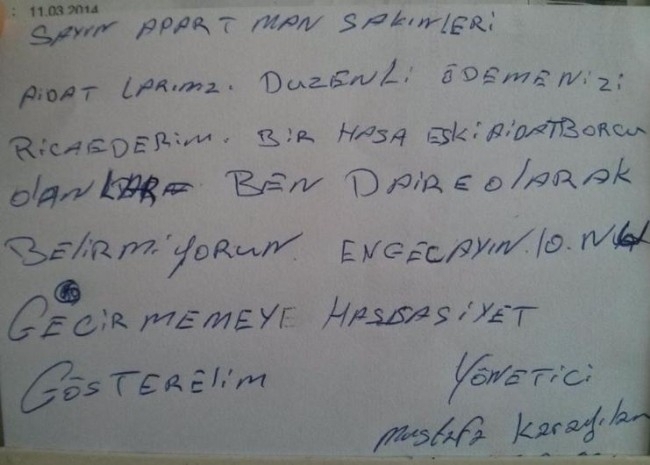 11.03.2014
SAYIN APARTMAN SAKINLERİ
AİDAT LARIMZ. DUZENLİ ÖDEMENİZİ
RİCAEDERİM. BİR HASA ESKİ AİDATBORCU
OlAN BEN DAİRE OlARAK
BELİRMİYORUN. ENGECAYIN.10.NU
GECİRMEMEYE HASSASİYET
GÖSTERELİM YÖNETİCİ
Mustafa